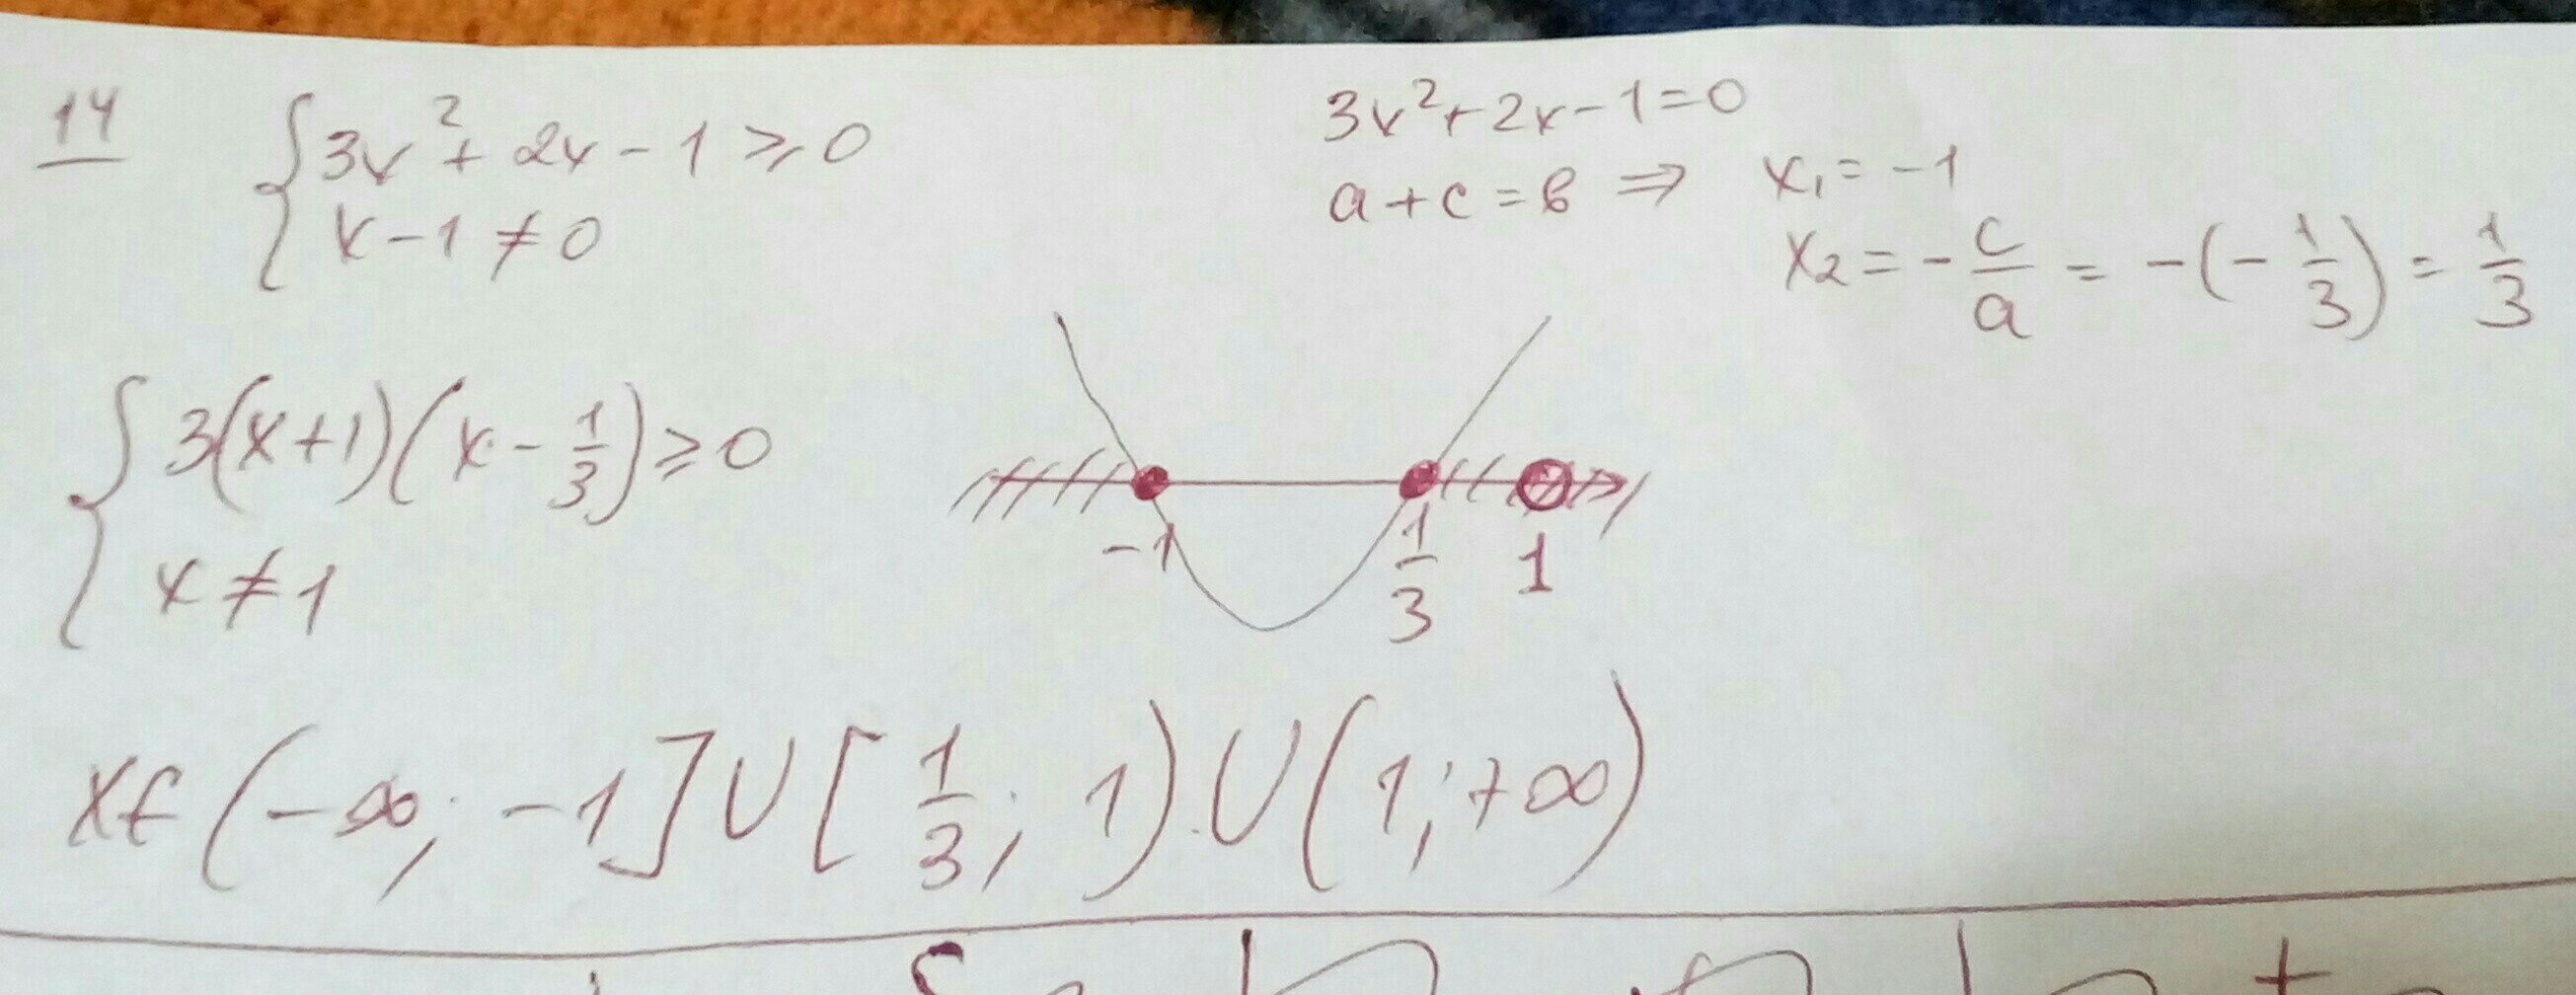 14
{ 3x² + 2x - 1 ⩾ 0
x - 1 ≠ 0
3x² + 2x - 1 = 0
a + c = b ⇒ x₁ = -1
x₂ = - c/a = -(- 1/3) = 1/3
{ 3(x+1)(x - 1/3) ⩾ 0
x ≠ 1
-1 1/3 1
x ∈ (-∞; -1] ∪ [1/3; 1) ∪ (1; +∞)